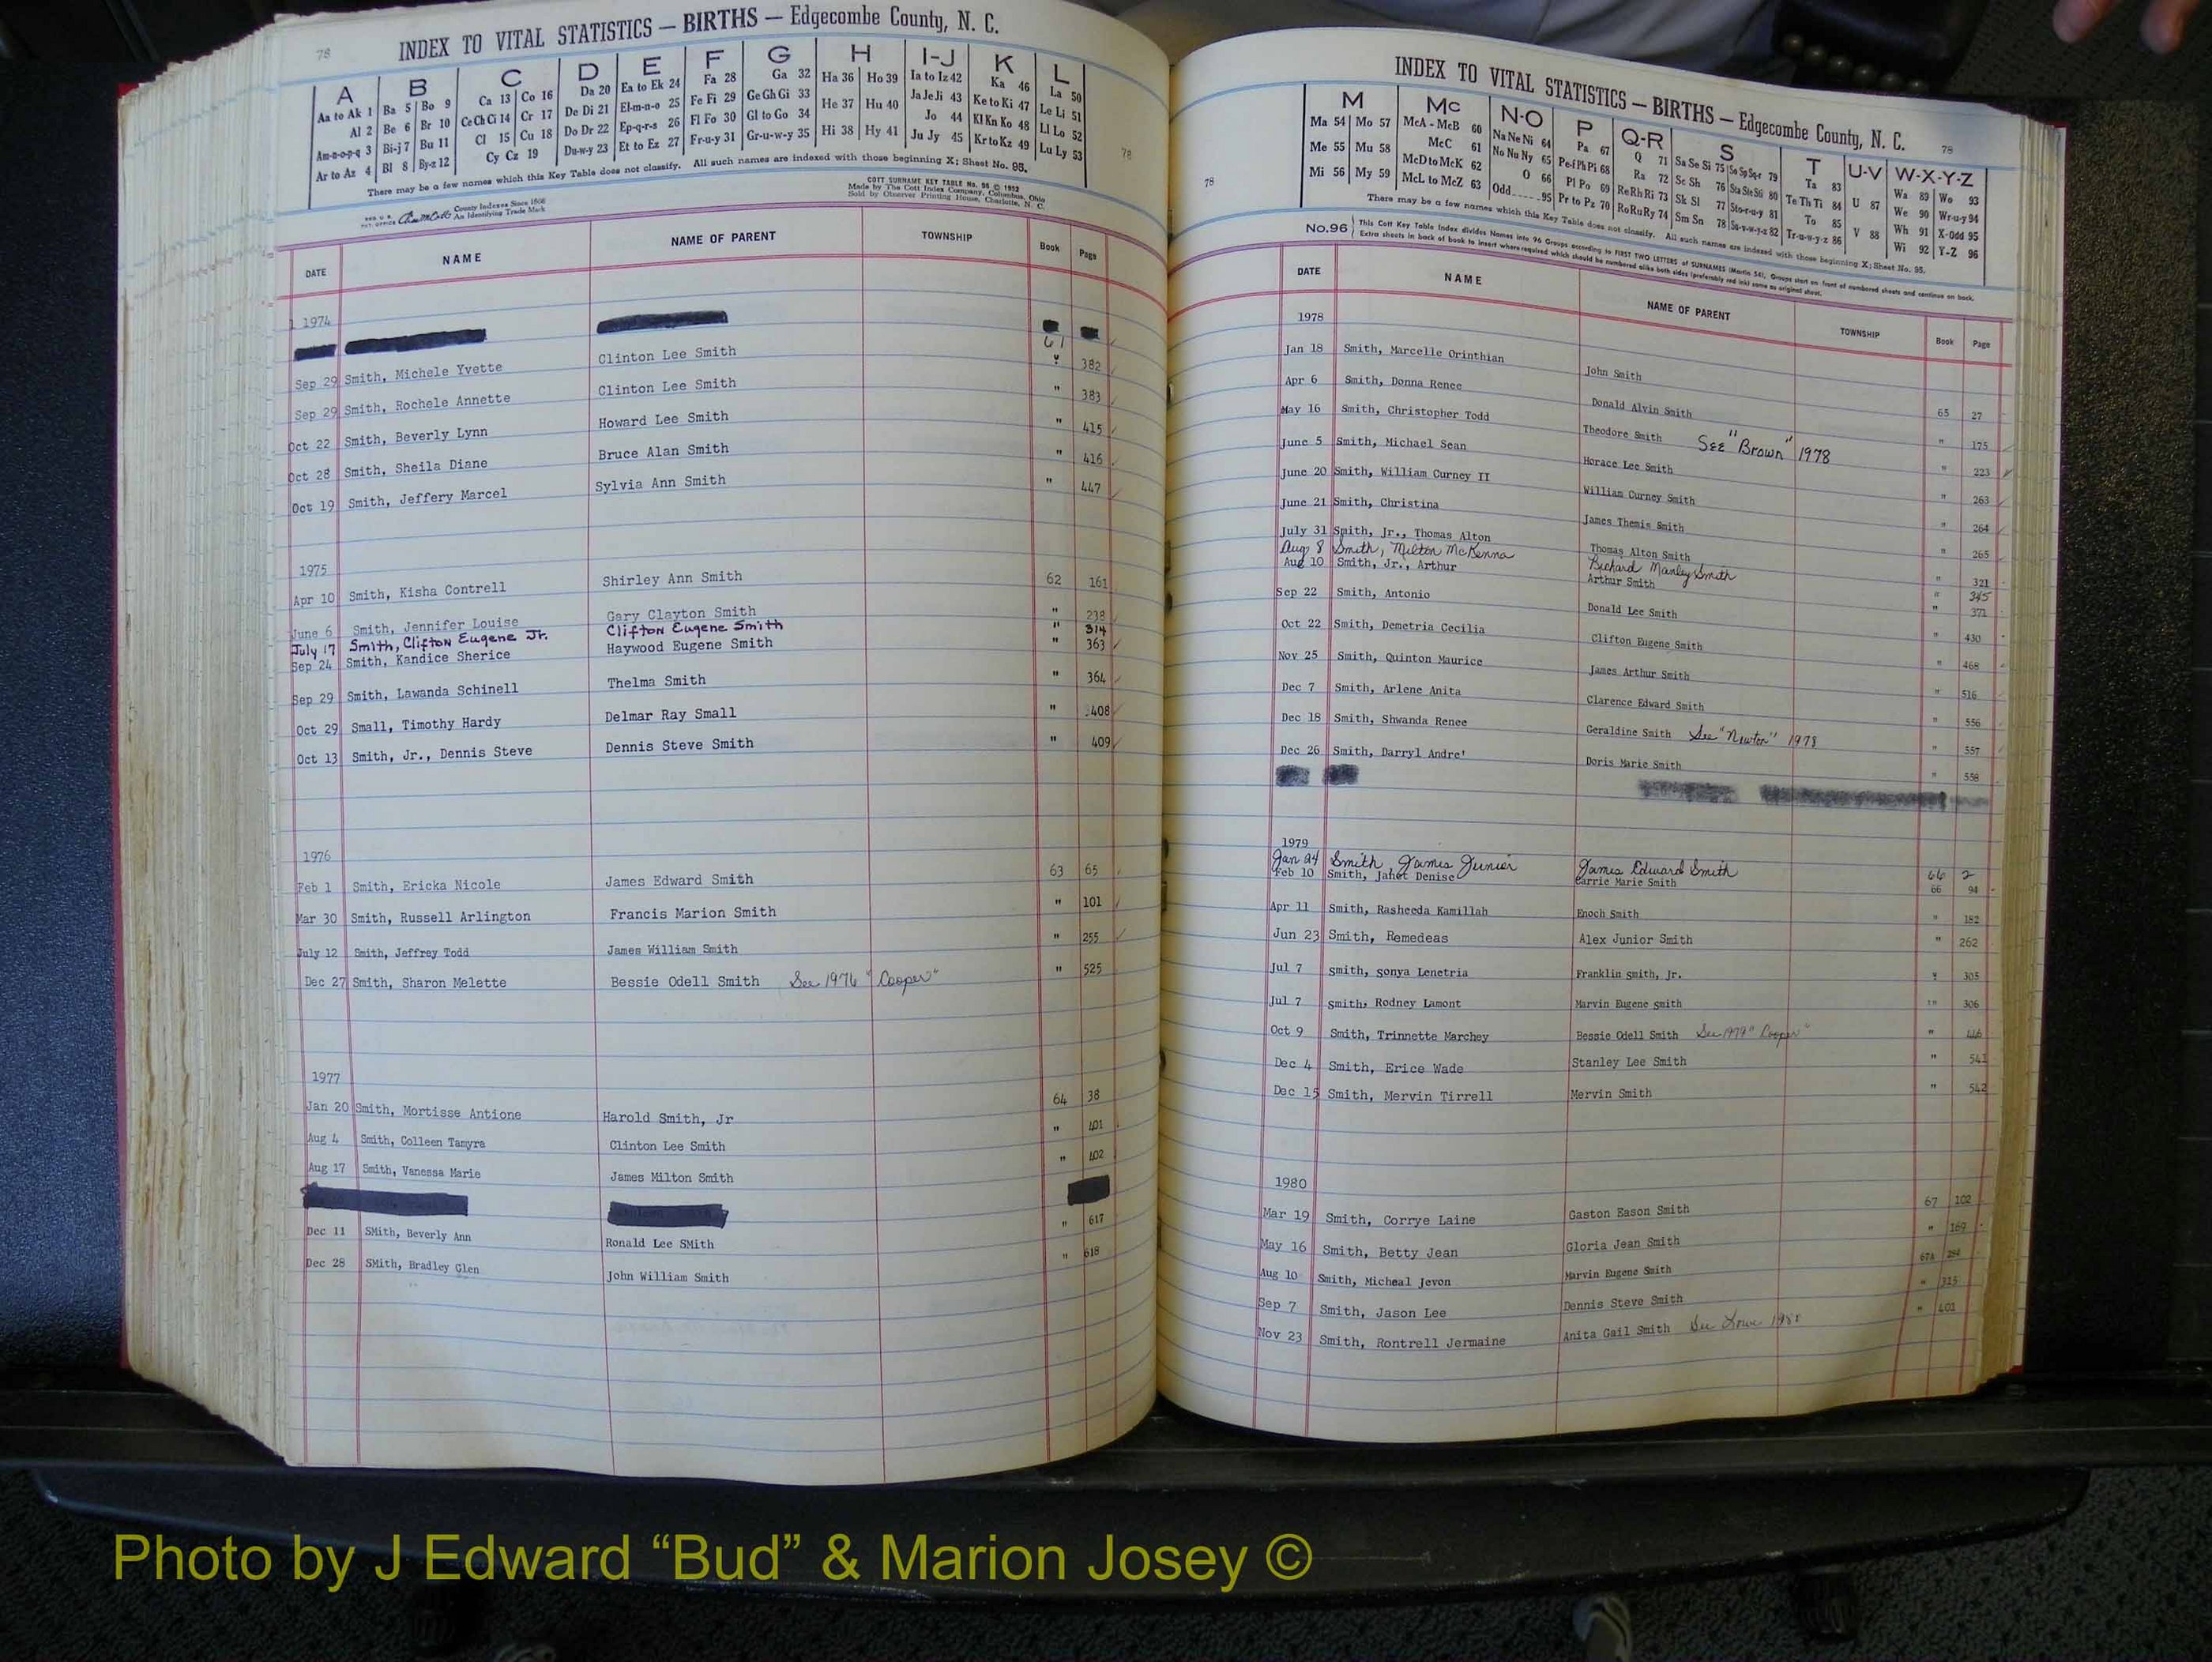 78
INDEX TO VITAL STATISTICS — BIRTHS — Edgecombe County, N. C.
A B C D E F G H I-J K L
Aa to Ak 1 Ba 5 Bo 9 Ca 13 Co 16 Da 20 Ea to Ek 24 Fa 28 Ga 32 Ha 36 Ho 39 Ia to Iz 42 Ka 46 La 50
Al 2 Be 6 Br 10 Ce Ch Ci 14 Cr 17 De Di 21 El-m-n-o 25 Fe Fi 29 Ge Gh Gi 33 He 37 Hu 40 Ja Je Ji 43 Ke to Ki 47 Le Li 51
Am-n-o-p-q 3 Bi-j 7 Bu 11 Cl 15 Cu 18 Do Dr 22 Ep-q-r-s 26 Fl Fo 30 Gl to Go 34 Hi 38 Hy 41 Jo 44 Kl Kn Ko 48 Ll Lo 52
Ar to Az 4 Bl 8 By-z 12 Cy Cz 19 Du-w-y 23 Et to Ez 27 Fr-u-y 31 Gr-u-w-y 35 Ju Jy 45 Kr to Kz 49 Lu Ly 53
78
There may be a few names which this Key Table does not classify. All such names are indexed with those beginning X; Sheet No. 95.
County Indexes Since 1888
An Identifying Trade Mark
COTT SURNAME KEY TABLE No. 96 © 1952
Made by The Cott Index Company, Columbus, Ohio
Sold by Observer Printing House, Charlotte, N. C.
DATE NAME NAME OF PARENT TOWNSHIP Book Page
1974
61
Sep 29 Smith, Michele Yvette Clinton Lee Smith " 382
Sep 29 Smith, Rochele Annette Clinton Lee Smith " 383
Oct 22 Smith, Beverly Lynn Howard Lee Smith " 415
Oct 28 Smith, Sheila Diane Bruce Alan Smith " 416
Oct 19 Smith, Jeffery Marcel Sylvia Ann Smith " 447
1975
Apr 10 Smith, Kisha Contrell Shirley Ann Smith 62 161
June 6 Smith, Jennifer Louise Gary Clayton Smith " 238
July 17 Smith, Clifton Eugene Jr. Clifton Eugene Smith " 314
Sep 24 Smith, Kandice Sherice Haywood Eugene Smith " 363
Sep 29 Smith, Lawanda Schinell Thelma Smith " 364
Oct 29 Small, Timothy Hardy Delmar Ray Small " 408
Oct 13 Smith, Jr., Dennis Steve Dennis Steve Smith " 409
1976
Feb 1 Smith, Ericka Nicole James Edward Smith 63 65
Mar 30 Smith, Russell Arlington Francis Marion Smith " 101
July 12 Smith, Jeffrey Todd James William Smith " 255
Dec 27 Smith, Sharon Melette Bessie Odell Smith See 1976 "Cooper" " 525
1977
Jan 20 Smith, Mortisse Antione Harold Smith, Jr 64 38
Aug 4 Smith, Colleen Tamyra Clinton Lee Smith " 401
Aug 17 Smith, Vanessa Marie James Milton Smith " 402
Dec 11 SMith, Beverly Ann Ronald Lee SMith " 617
Dec 28 SMith, Bradley Glen John William Smith " 618
INDEX TO VITAL STATISTICS — BIRTHS — Edgecombe County, N. C.
78
78
M Mc N-O P Q-R S T U-V W-X-Y-Z
Ma 54 Mo 57 McA - McB 60 Na Ne Ni 64 Pa 67 Q 71 Sa Se Si 75 So Sp Sq-r 79 Ta 83 U 87 Wa 89 Wo 93
Me 55 Mu 58 McC 61 No Nu Ny 65 Pe-f Ph Pi 68 Ra 72 Sc Sh 76 Sta Ste Sti 80 Te Th Ti 84 We 90 Wr-u-y 94
Mi 56 My 59 McD to McK 62 O 66 Pl Po 69 Re Rh Ri 73 Sk Sl 77 Sto-r-u-y 81 To 85 V 88 Wh 91 X-Odd 95
McL to McZ 63 Odd 95 Pr to Pz 70 Ro Ru Ry 74 Sm Sn 78 Su-v-w-y-z 82 Tr-u-w-y-z 86 Wi 92 Y-Z 96
There may be a few names which this Key Table does not classify. All such names are indexed with those beginning X; Sheet No. 95.
No. 96 This Cott Key Table Index divides Names into 96 Groups according to FIRST TWO LETTERS of SURNAMES (Martin 54). Groups start on front of numbered sheets and continue on back.
Extra sheets in back of book to insert where required which should be numbered alike both sides (preferably red ink) same as original sheet.
DATE NAME NAME OF PARENT TOWNSHIP Book Page
1978
Jan 18 Smith, Marcelle Orinthian John Smith 65 27
Apr 6 Smith, Donna Renee Donald Alvin Smith " 175
May 16 Smith, Christopher Todd Theodore Smith SEE "Brown" 1978 " 223
June 5 Smith, Michael Sean Horace Lee Smith " 263
June 20 Smith, William Curney II William Curney Smith " 264
June 21 Smith, Christina James Themis Smith " 265
July 31 Smith, Jr., Thomas Alton Thomas Alton Smith " 321
Aug 8 Smith, Milton McKenna Richard Manley Smith " 345
Aug 10 Smith, Jr., Arthur Arthur Smith " 371
Sep 22 Smith, Antonio Donald Lee Smith " 430
Oct 22 Smith, Demetria Cecilia Clifton Eugene Smith " 468
Nov 25 Smith, Quinton Maurice James Arthur Smith " 516
Dec 7 Smith, Arlene Anita Clarence Edward Smith " 556
Dec 18 Smith, Shwanda Renee Geraldine Smith See "Newton" 1978 " 557
Dec 26 Smith, Darryl Andre' Doris Marie Smith " 558
1979
Jan 24 Smith, James Junior James Edward Smith 66 2
Feb 10 Smith, Janet Denise Carrie Marie Smith 66 94
Apr 11 Smith, Rasheeda Kamillah Enoch Smith " 182
Jun 23 Smith, Remedeas Alex Junior Smith " 262
Jul 7 smith, sonya Lenetria Franklin smith, Jr. " 305
Jul 7 smith, Rodney Lamont Marvin Eugene smith " 306
Oct 9 Smith, Trinnette Marchey Bessie Odell Smith See 1979 "Cooper" "
Dec 4 Smith, Erice Wade Stanley Lee Smith " 541
Dec 15 Smith, Mervin Tirrell Mervin Smith " 542
1980
Mar 19 Smith, Corrye Laine Gaston Eason Smith 67 102
May 16 Smith, Betty Jean Gloria Jean Smith " 169
Aug 10 Smith, Micheal Jevon Marvin Eugene Smith 67A
Sep 7 Smith, Jason Lee Dennis Steve Smith " 315
Nov 23 Smith, Rontrell Jermaine Anita Gail Smith See Lowe " 401
Photo by J Edward “Bud” & Marion Josey ©